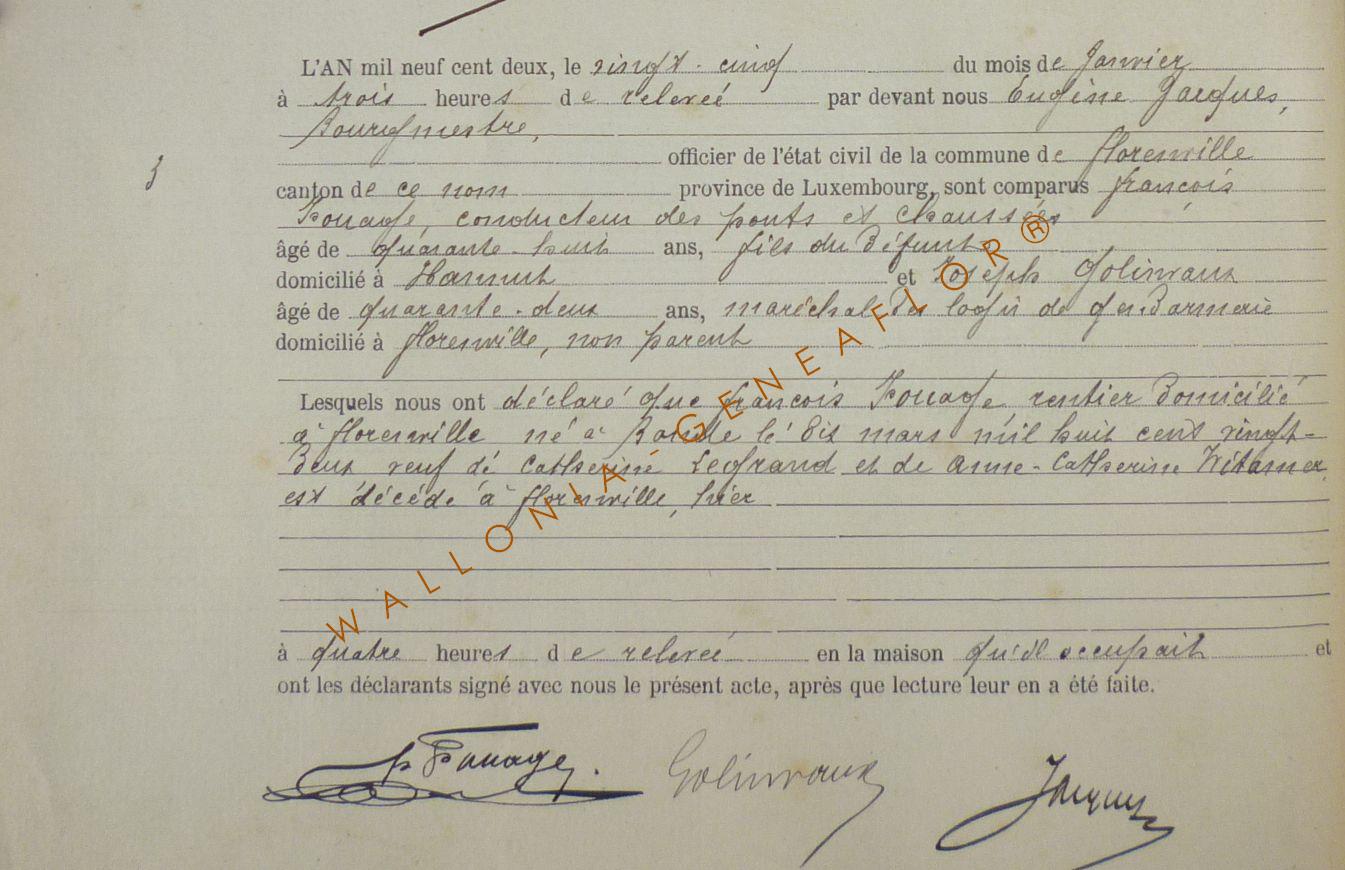 L'AN mil neuf cent deux, le vingt-cinq du mois de Janvier
à trois heures de relevée par devant nous Eugène Jacques,
Bourgmestre,
officier de l'état civil de la commune de florenville
canton de ce nom province de Luxembourg, sont comparus françois
Fouage, conducteur des ponts et chaussées
âgé de quarante-huit ans, fils du défunt
domicilié à Hannut et Joseph Golinvaux
âgé de quarante-deux ans, maréchal des logis de gendarmerie
domicilié à florenville, non parent
Lesquels nous ont déclaré que françois Fouage rentier domicilié
à florenville né à le dix mars mil huit cent vingt-
deux veuf de Catherine Legrand et de Anne-Catherine
est décédé à florenville, hier
à quatre heures de relevée en la maison qu'il occupait et
ont les déclarants signé avec nous le présent acte, après que lecture leur en a été faite.
Fouage. Golinvaux Jacques
WALLONIA GENEAFLOR ®